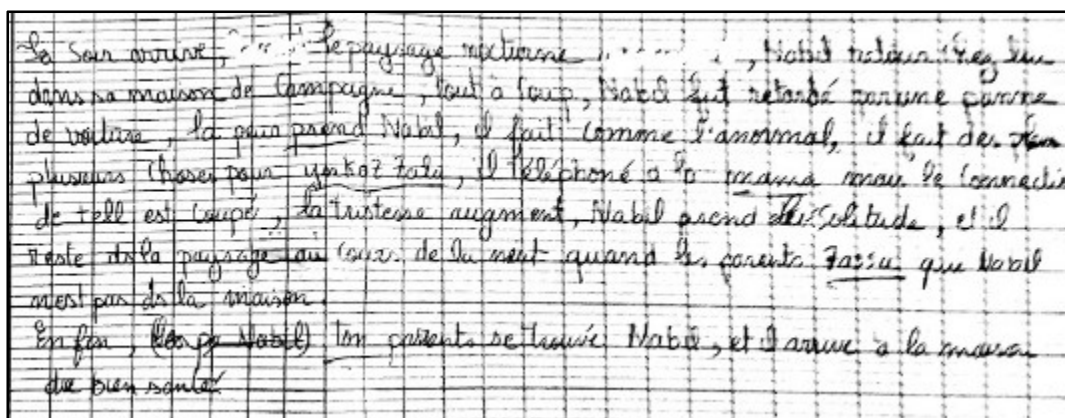 La Soir arrive, le paysage nocturne , Nabil retour chez lui
dans sa maison de Campagne, tout à coup, Nabil fut retardé par une panne
de voiture, la peur prend Nabil, il fait comme l'anormal, il fait des
plusieurs choses pour yorkoz fala, il téléphoné a la mama mais le connectio
de tell est coupé, la tristesse augment, Nabil prend solitude, et il
reste ds la paysage au cours de la nest quand les parents que Nabil
n'est pas ds la maison.
En fin, (les Nabil) ton parents se trouvé Nabil, et il arrive a la maison
de bien santé.